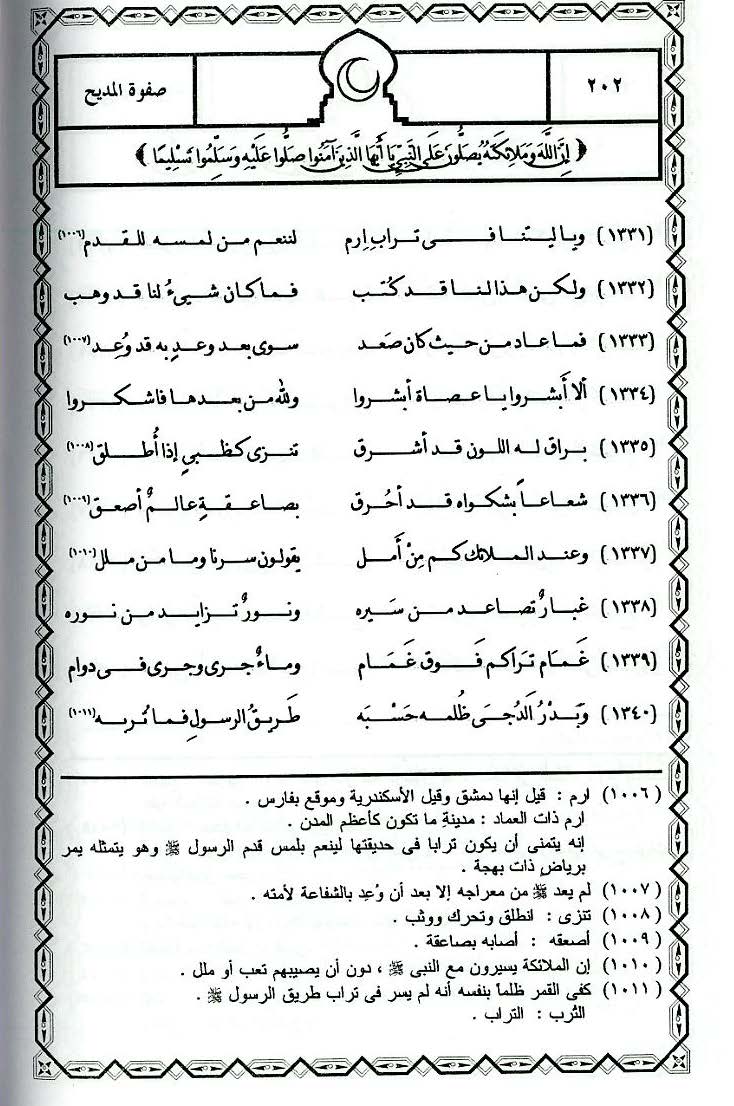 ٢٠٢
صفوة المديح
﴿ إِنَّ اللَّهَ وَمَلَائِكَتَهُ يُصَلُّونَ عَلَى النَّبِيِّ يَا أَيُّهَا الَّذِينَ آمَنُوا صَلُّوا عَلَيْهِ وَسَلِّمُوا تَسْلِيمًا ﴾
(١٣٣١) ويا ليتنا فى تراب إِرم لننعم من لمسه للقدم (١٠٠٦)
(١٣٣٢) ولكن هذا لنا قد كُتب فما كان شيىءُ لنا قد وهب
(١٣٣٣) فما عاد من حيث كان صَعد سوى بعد وعدٍ به قد وُعِد (١٠٠٧)
(١٣٣٤) ألا أَبشروا يا عصاة أبشروا ولله من بعدها فاشكروا
(١٣٣٥) براق له اللون قد أشرق تنزى كظبيٍ إذا أُطلق (١٠٠٨)
(١٣٣٦) شعاعاً بشكواه قد أحُرق بصاعقةِ عالمٌ أصعق (١٠٠٩)
(١٣٣٧) وعند الملائك كم مِنْ أَمل يقولون سرنا وما من ملل (١٠١٠)
(١٣٣٨) غبارٌ تصاعد من سَيره ونورٌ تزايد من نوره
(١٣٣٩) غَمام تراكم فَوق غَمَام وماءٌ جرى وجرى فى دوام
(١٣٤٠) وَبَدْرُ الَدُجَى ظُلمه حَسْبَه طَريقُ الرسولِ فما تُربه (١٠١١)
(١٠٠٦) ارم : قيل إنها دمشق وقيل الأسكندرية وموقع بفارس .
ارم ذات العماد : مدينةِ ما تكون كأعظم المدن .
إنه يتمنى أن يكون ترابا فى حديقتها لينعم بلمس قدم الرسول ﷺ وهو يتمثله يمر
برياضٍ ذات بهجة .
(١٠٠٧) لم يعد ﷺ من معراجه إلا بعد أن وُعِد بالشفاعة لأمته .
(١٠٠٨) تنزى : انطلق وتحرك ووثب .
(١٠٠٩) أصعقه : أصابه بصاعقة .
(١٠١٠) إن الملائكة يسيرون مع النبى ﷺ ، دون أن يصيبهم تعب أو ملل .
(١٠١١) كفى القمر ظلماً بنفسه أنه لم يسر فى تراب طريق الرسول ﷺ .
التُرب : التراب .